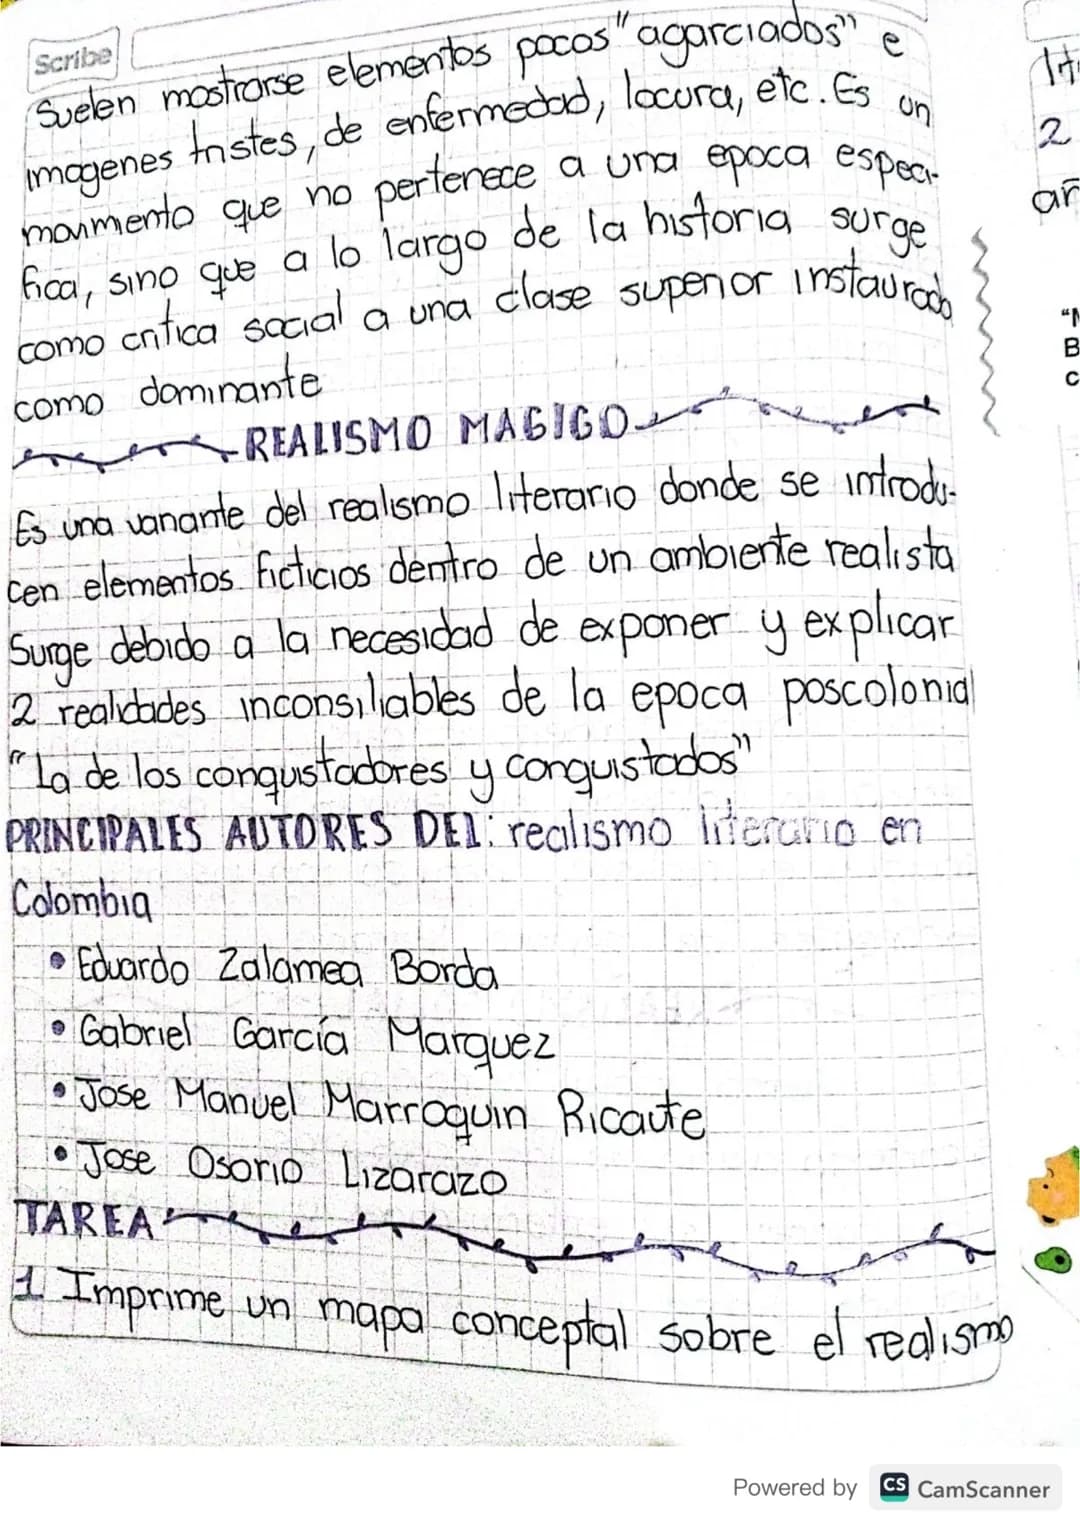 Scribe
Suelen mostrarse elementos pocos "agarciados" e
imagenes tristes, de enfermedad, locura, etc. Es un
movimiento que no pertenece a una epoca especi-
fica, sino que a lo largo de la historia surge
como critica social a una clase superior instaurada
como dominante
REALISMO MAGICO
Es una variante del realismo literario donde se introdu-
cen elementos ficticios dentro de un ambiente realista
Surge debido a la necesidad de exponer y explicar
2 realidades inconsiliables de la epoca poscolonial
"La de los conquistadores y conquistados"
PRINCIPALES AUTORES DEL: realismo literario en
Colombia
• Eduardo Zalamea Borda
• Gabriel García Marquez
• Jose Manuel Marroquin Ricaute
• Jose Osorio Lizarazo
TAREA
1 Imprime un mapa conceptal sobre el realismo
2
Powered by CS CamScanner